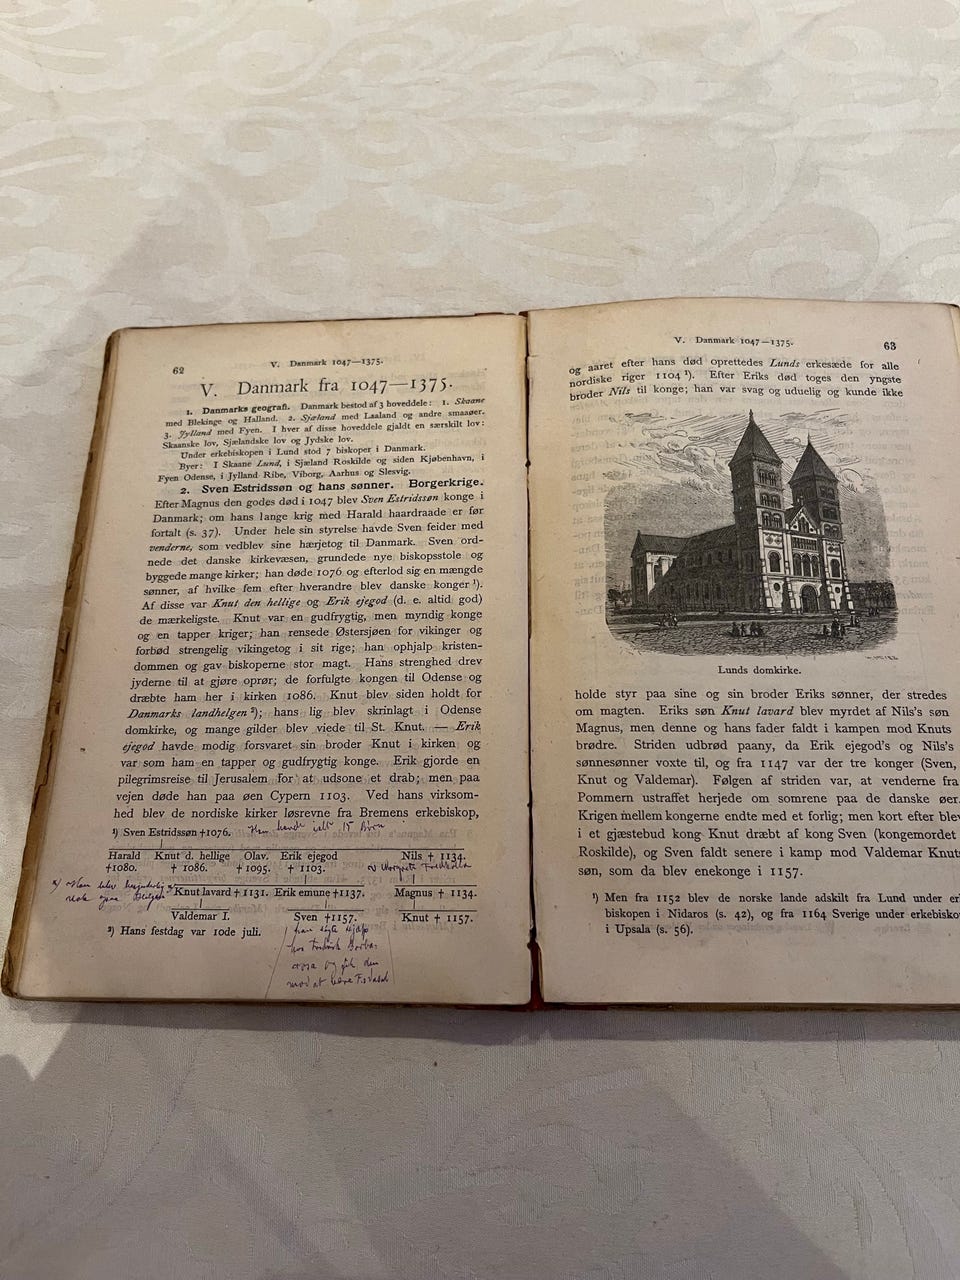 62
V. Danmark 1047—1375.
V. Danmark fra 1047—1375.
1. Danmarks geografi. Danmark bestod af 3 hoveddele: 1. Skaane
med Blekinge og Halland. 2. Sjæland med Laaland og andre smaaøer.
3. Jylland med Fyen. I hver af disse hoveddele gjaldt en særskilt lov:
Skaanske lov, Sjælandske lov og Jydske lov.
Under erkebiskopen i Lund stod 7 biskoper i Danmark.
Byer: I Skaane Lund, i Sjæland Roskilde og siden Kjøbenhavn, i
Fyen Odense, i Jylland Ribe, Viborg, Aarhus og Slesvig.
2. Sven Estridssøn og hans sønner. Borgerkrige.
Efter Magnus den godes død i 1047 blev Sven Estridssøn konge i
Danmark; om hans lange krig med Harald haardraade er før
fortalt (s. 37). Under hele sin styrelse havde Sven feider med
venderne, som vedblev sine hærjetog til Danmark. Sven ord-
nede det danske kirkevæsen, grundede nye biskopsstole og
byggede mange kirker; han døde 1076 og efterlod sig en mængde
sønner, af hvilke fem efter hverandre blev danske konger ¹).
Af disse var Knut den hellige og Erik ejegod (d. e. altid god)
de mærkeligste. Knut var en gudfrygtig, men myndig konge
og en tapper kriger; han rensede Østersjøen for vikinger og
forbød strengelig vikingetog i sit rige; han ophjalp kristen-
dommen og gav biskoperne stor magt. Hans strenghed drev
jyderne til at gjøre oprør; de forfulgte kongen til Odense og
dræbte ham her i kirken 1086. Knut blev siden holdt for
Danmarks landhelgen ²); hans lig blev skrinlagt i Odense
domkirke, og mange gilder blev viede til St. Knut. — Erik
ejegod havde modig forsvaret sin broder Knut i kirken og
var som ham en tapper og gudfrygtig konge. Erik gjorde en
pilegrimsreise til Jerusalem for at udsone et drab; men paa
veien døde han paa øen Cypern 1103. Ved hans virksom-
hed blev de nordiske kirker løsrevne fra Bremens erkebiskop,
¹) Sven Estridssøn †1076. Han havde ialt 15 Børn
Harald Knut d. hellige Olav. Erik ejegod Nils † 1134.
†1080. † 1086. †1095. † 1103.
Knut lavard † 1131. Erik emune †1137. Magnus † 1134.
Valdemar I. Sven †1157. Knut † 1157.
²) Hans festdag var 10de juli.
V. Danmark 1047—1375.
63
og aaret efter hans død oprettedes Lunds erkesæde for alle
nordiske riger 1104 ¹). Efter Eriks død toges den yngste
broder Nils til konge; han var svag og uduelig og kunde ikke
Lunds domkirke.
holde styr paa sine og sin broder Eriks sønner, der stredes
om magten. Eriks søn Knut lavard blev myrdet af Nils's søn
Magnus, men denne og hans fader faldt i kampen mod Knuts
brødre. Striden udbrød paany, da Erik ejegod's og Nils's
sønnesønner voxte til, og fra 1147 var der tre konger (Sven,
Knut og Valdemar). Følgen af striden var, at venderne fra
Pommern ustraffet herjede om somrene paa de danske øer.
Krigen mellem kongerne endte med et forlig; men kort efter blev
i et gjæstebud kong Knut dræbt af kong Sven (kongemordet
Roskilde), og Sven faldt senere i kamp mod Valdemar Knuts
søn, som da blev enekonge i 1157.
¹) Men fra 1152 blev de norske lande adskilt fra Lund under er
biskopen i Nidaros (s. 42), og fra 1164 Sverige under erkebisko
i Upsala (s. 56).